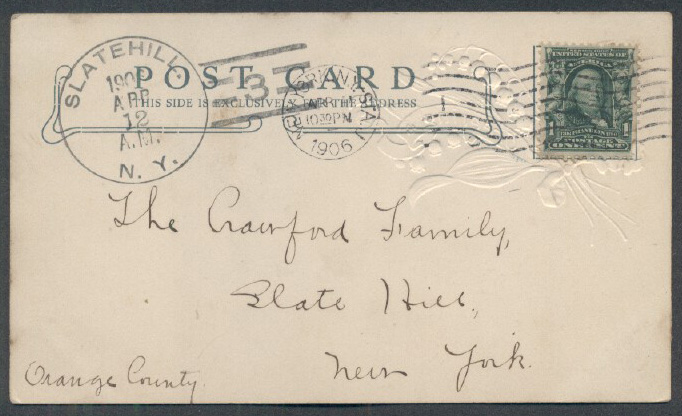 SLATEHILL.
190
APR
12
A.M.
N. Y.
3
POST CARD
THIS SIDE IS EXCLUSIVELY FOR THE ADDRESS
APR
10 30 PM
1906
UNITED STATES OF
POSTAGE
1 ONE CENT 1
The Crawford Family,
Slate Hill,
New York.
Orange County.